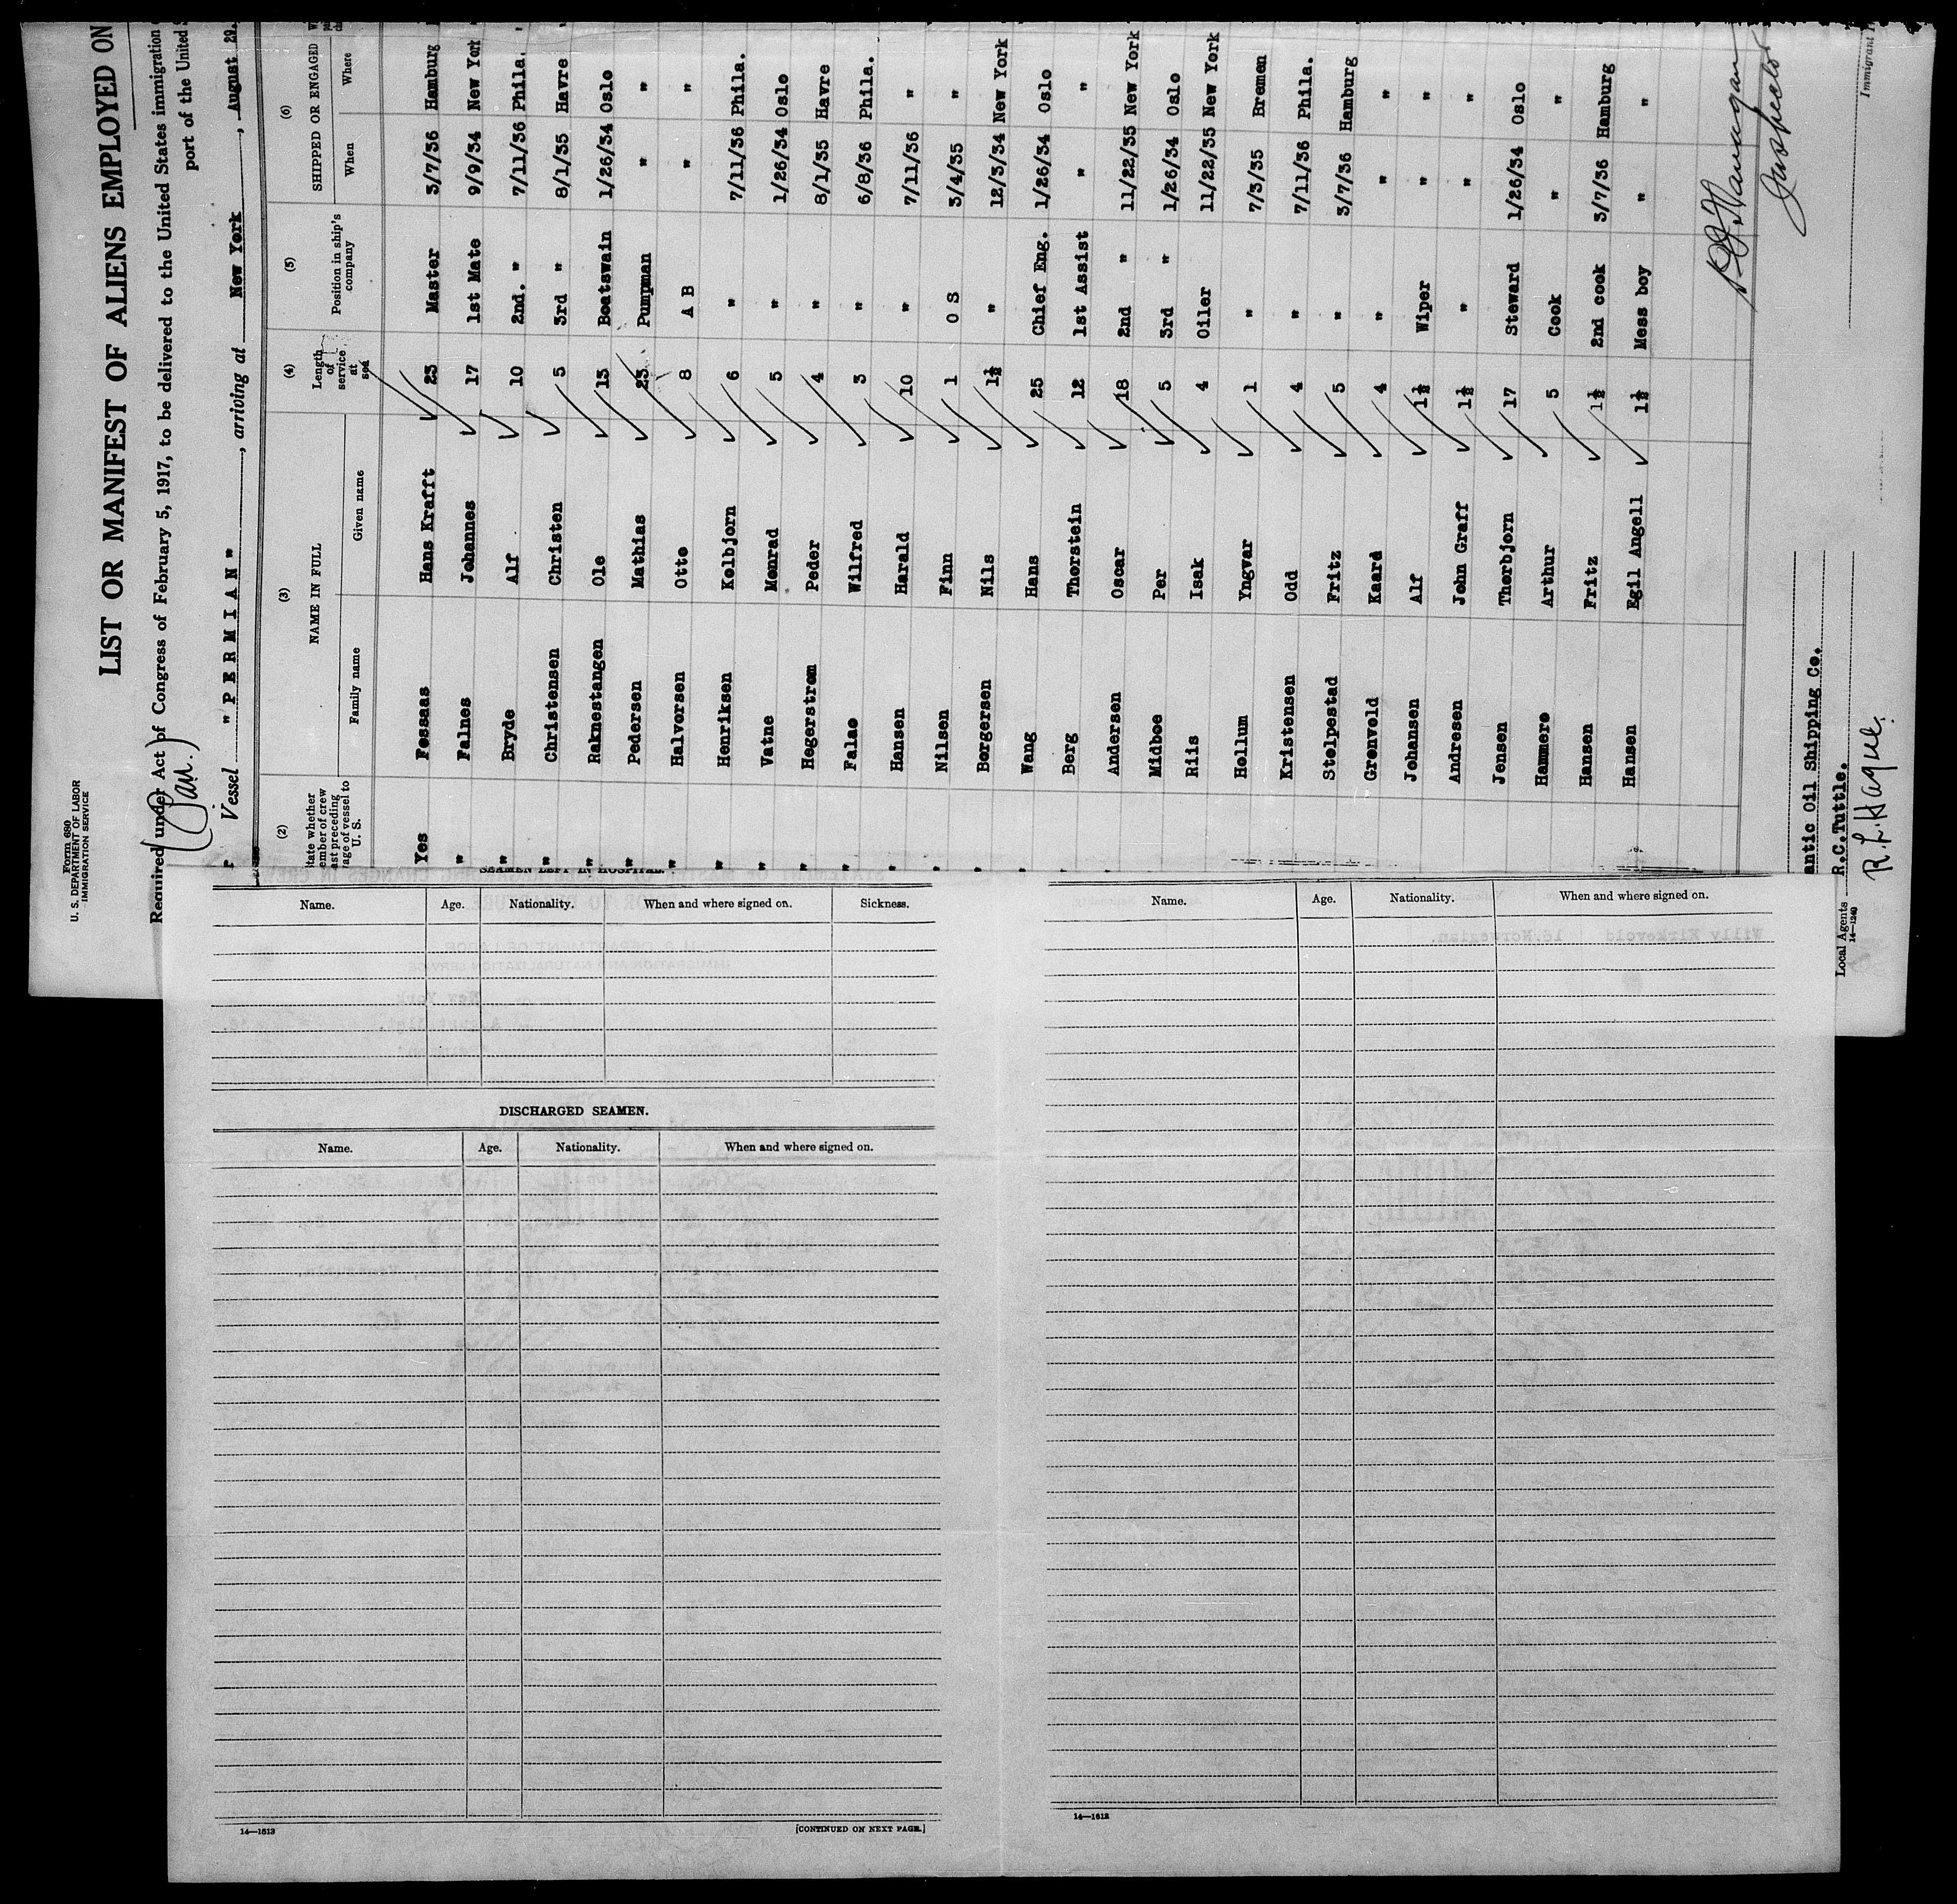 Form 680
U. S. DEPARTMENT OF LABOR
IMMIGRATION SERVICE
LIST OR MANIFEST OF ALIENS EMPLOYED ON
Required under Act of Congress of February 5, 1917, to be delivered to the United States immigration
port of the United
(Pan.)
Vessel "PERMIAN", arriving at New York, August 29.
(2) (3) (4) (5) (6)
NAME IN FULL SHIPPED OR ENGAGED
Family name Given name Length of service at sea Position in ship's company When Where
Yes Fossaas Hans Krafft 23 Master 3/7/36 Hamburg
" Falnes Johannes 17 1st Mate 9/9/34 New York
" Bryde Alf 10 2nd. " 7/11/36 Phila.
" Christensen Christen 5 3rd " 8/1/35 Havre
" Raknestangen Ole 13 Boatswain 1/26/34 Oslo
" Pedersen Mathias 23 Pumpman " "
" Halvorsen Otto 8 A B " "
" Henriksen Kolbjorn 6 " 7/11/36 Phila.
" Vatne Monrad 5 " 1/26/34 Oslo
" Hegerstrom Peder 4 " 8/1/35 Havre
" Falao Wilfred 3 " 6/8/36 Phila.
" Hansen Harald 10 " 7/11/36 "
" Nilsen Finn 1 O S 3/4/35 "
" Borgersen Nils 1½ " 12/3/34 New York
Wang Hans 25 Chief Eng. 1/26/34 Oslo
Berg Thorstein 12 1st Assist " "
Andersen Oscar 18 2nd " 11/22/35 New York
Midboe Per 5 3rd " 1/26/34 Oslo
Riis Isak 4 Oiler 11/22/35 New York
Hollum Yngvar 1 " 7/3/35 Bremen
Kristensen Odd 4 " 7/11/36 Phila.
Stolpestad Fritz 5 " 3/7/36 Hamburg
Gronvold Kaard 4 " " "
Johansen Alf 1½ Wiper " "
Andresen John Graff 1½ " " "
Jensen Thorbjorn 17 Steward 1/26/34 Oslo
Hammero Arthur 5 Cook " "
Hansen Fritz 1½ 2nd cook 3/7/36 Hamburg
Hansen Egil Angell 1½ Mess boy " "
Inspector
Immigrant
antic Oil Shipping Co.
Local Agents R.C.Tuttle.
R. L. Hague.
14—1240
SEAMEN LEFT IN HOSPITAL.
Name. Age. Nationality. When and where signed on. Sickness.
DISCHARGED SEAMEN.
Name. Age. Nationality. When and where signed on.
14—1613
[CONTINUED ON NEXT PAGE.]
Name. Age. Nationality. When and where signed on.
14—1612